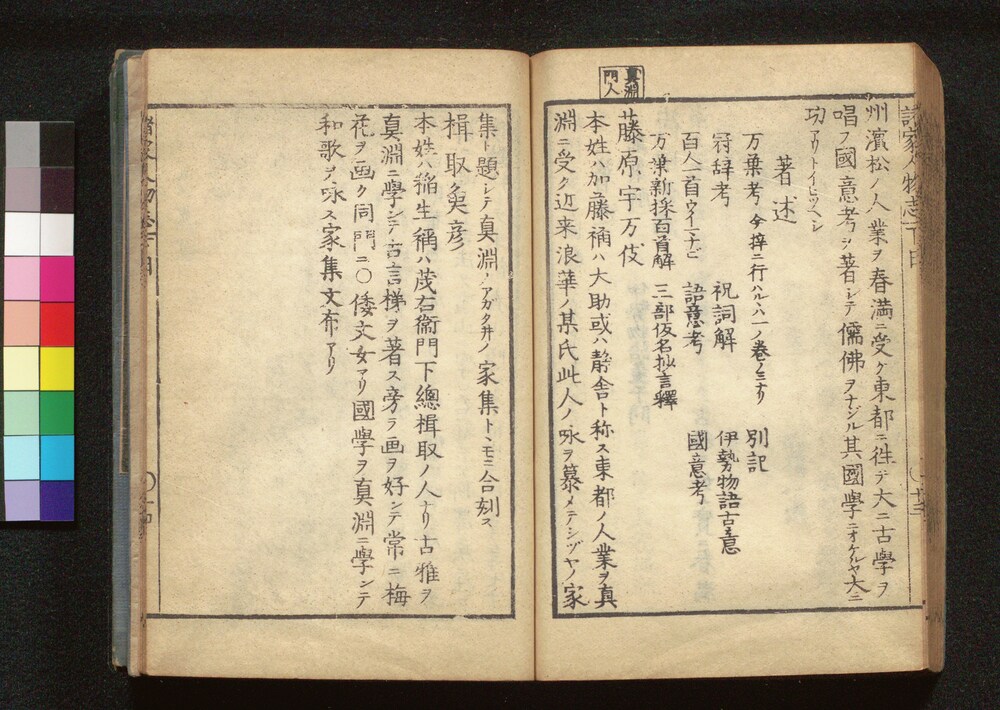 真淵
門人
諸家人物志下
州濱松ノ人業ヲ春満ニ受ケ東都ニ徃テ大ニ古學ヲ
唱フ國意考ヲ著シテ儒佛ヲナジル其國學ニオケルヤ大ニ
功アリトイヒツヘシ
著述
万葉考 今梓ニ行ハルヽハ一ノ巻ノミナリ 別記
冠辞考 祝詞解 伊勢物語古意
百人一首ウイマナビ 語意考 國意考
万葉新採百首解 三部仮名抄言釋
藤原宇万伎
本姓ハ加藤稱ハ大助或ハ静舎ト称ス東都ノ人業ヲ真
淵ニ受ク近来浪華ノ某氏此人ノ咏ヲ慕メテシヅヤノ家
集ト題シテ真淵ノアガタ井ノ家集トトモニ合刻ス
楫取魚彦
本姓ハ稲生稱ハ茂右衞門下總楫取ノ人ナリ古雅ヲ
真淵ニ學ンテ古言梯ヲ著ス旁ラ画ヲ好ンテ常ニ梅
花ヲ画ク同門ニ〇倭文女アリ國學ヲ真淵ニ學ンテ
和歌ヲ咏ス家集文布アリ